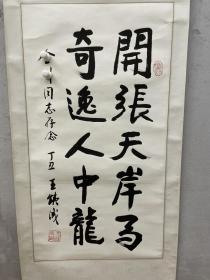 開張天岸馬
奇逸人中龍
同志存念 丁丑 王铁成